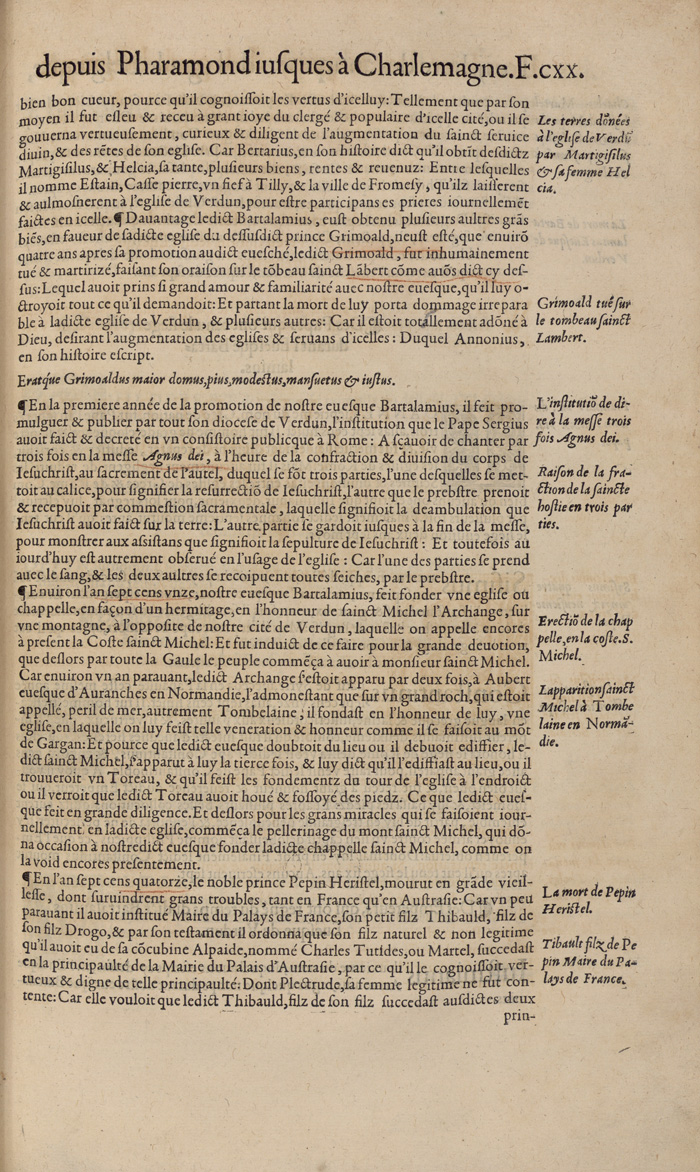 depuis Pharamond iuſques à Charlemagne. F.cxx.
bien bon cueur, pource qu'il cognoiſſoit les vertus d'icelluy: Tellement que par ſon
moyen il fut eſleu & receu à grant ioye du clergé & populaire d'icelle cité, ou il ſe
gouuerna vertueuſement, curieux & diligent de l'augmentation du ſainct ſeruice
diuin, & des rẽtes de ſon egliſe. Car Bertarius, en ſon hiſtoire dict qu'il obtīt deſdictz
Martigiſilus, & Helcia, ſa tante, pluſieurs biens, rentes & reuenuz: Entre leſquelles
il nomme Eſtain, Caſſe pierre, vn fief à Tilly, & la ville de Fromeſy, qu'ilz laiſſerent
& aulmoſnerent à l'egliſe de Verdun, pour eſtre participans es prieres iournellemẽt
faictes en icelle. ¶ Dauantage ledict Bartalamius, euſt obtenu pluſieurs aultres grãs
biẽs, en faueur de ſadicte egliſe du deſſuſdict prince Grimoald, neuſt eſté, que enuirõ
quatre ans apres ſa promotion audict eueſché, ledict Grimoald, fut inhumainement
tué & martirizé, faiſant ſon oraiſon ſur le tõbeau ſainct Lãbert cõme auõs dict cy deſ-
ſus: Lequel auoit prins ſi grand amour & familiarité auec noſtre eueſque, qu'il luy o-
ctroyoit tout ce qu'il demandoit: Et partant la mort de luy porta dommage irrepara
ble à ladicte egliſe de Verdun, & pluſieurs autres: Car il eſtoit totallement adõné à
Dieu, deſirant l'augmentation des egliſes & ſeruans d'icelles: Duquel Annonius,
en ſon hiſtoire eſcript.
Eratq́ue Grimoaldus maior domus, pius, modeſtus, manſuetus & iuſtus.
¶ En la premiere année de la promotion de noſtre eueſque Bartalamius, il feit pro-
mulguer & publier par tout ſon dioceſe de Verdun, l'inſtitution que le Pape Sergius
auoit faict & decreté en vn conſiſtoire publicque à Rome: A ſçauoir de chanter par
trois fois en la meſſe Agnus dei, à l'heure de la confraction & diuiſion du corps de
Ieſuchriſt, au ſacrement de l'autel, duquel ſe fõt trois parties, l'une deſquelles ſe met-
toit au calice, pour ſignifier la reſurrectiõ de Ieſuchriſt, l'autre que le prebſtre prenoit
& recepuoit par commeſtion ſacramentale, laquelle ſignifioit la deambulation que
Ieſuchriſt auoit faict ſur la terre: L'autre partie ſe gardoit iuſques à la fin de la meſſe,
pour monſtrer aux aſsiſtans que ſignifioit la ſepulture de Ieſuchriſt: Et toutefois au
iourd'huy eſt autrement obſerué en l'uſage de l'egliſe: Car l'une des parties ſe prend
auec le ſang, & les deux aultres ſe recoipuent toutes ſeiches, par le prebſtre.
¶ Enuiron l'an ſept cens vnze, noſtre eueſque Bartalamius, feit fonder vne egliſe ou
chappelle, en façon d'un hermitage, en l'honneur de ſainct Michel l'Archange, ſur
vne montagne, à l'oppoſite de noſtre cité de Verdun, laquelle on appelle encores
à preſent la Coſte ſainct Michel: Et fut induict de ce faire pour la grande deuotion,
que deſlors par toute la Gaule le peuple commẽça à auoir à monſieur ſainct Michel.
Car enuiron vn an parauant, ledict Archange ſ'eſtoit apparu par deux fois, à Aubert
eueſque d'Auranches en Normandie, l'admoneſtant que ſur vn grand roch, qui eſtoit
appellé, peril de mer, autrement Tombelaine, il fondaſt en l'honneur de luy, vne
egliſe, en laquelle on luy feiſt telle veneration & honneur comme il ſe faiſoit au mõt
de Gargan: Et pource que ledict eueſque doubtoit du lieu ou il debuoit ediffier, le-
dict ſainct Michel, ſ'apparut à luy la tierce fois, & luy dict qu'il l'ediffiaſt au lieu, ou il
trouueroit vn Toreau, & qu'il feiſt les fondementz du tour de l'egliſe à l'endroict
ou il verroit que ledict Toreau auoit houé & foſſoyé des piedz. Ce que ledict eueſ-
que feit en grande diligence. Et deſlors pour les grans miracles qui ſe faiſoient iour-
nellement en ladicte egliſe, commẽça le pellerinage du mont ſainct Michel, qui dõ-
na occaſion à noſtredict eueſque fonder ladicte chappelle ſainct Michel, comme on
la void encores preſentement.
¶ En l'an ſept cens quatorze, le noble prince Pepin Heriſtel, mourut en grãde vieil-
leſſe, dont ſuruindrent grans troubles, tant en France qu'en Auſtraſie: Car vn peu
parauant il auoit inſtitué Maire du Palays de France, ſon petit filz Thibauld, filz de
ſon filz Drogo, & par ſon teſtament il ordonna que ſon filz naturel & non legitime
qu'il auoit eu de ſa cõcubine Alpaide, nommé Charles Tutides, ou Martel, ſuccedaſt
en la principaulté de la Mairie du Palais d'Auſtraſie, par ce qu'il le cognoiſſoit ver-
tueux & digne de telle principaulté: Dont Plectrude, ſa femme legitime ne fut con-
tente: Car elle vouloit que ledict Thibauld, filz de ſon filz ſuccedaſt auſdictes deux
prin-
Les terres dõnées
à l'egliſe de Verdũ
par Martigiſilus
& ſa femme Hel
cia.
Grimoald tué ſur
le tombeau ſainct
Lambert.
L'inſtitutiõ de di-
re à la meſſe trois
fois Agnus dei.
Raiſon de la fra-
ction de la ſaincte
hoſtie en trois par
ties.
Erectiõ de la chap
pelle, en la coſte. S.
Michel.
Lapparition ſainct
Michel à Tombe
laine en Normã-
die.
La mort de Pepin
Heriſtel.
Tibault filz de Pe
pin Maire du Pa-
lays de France.